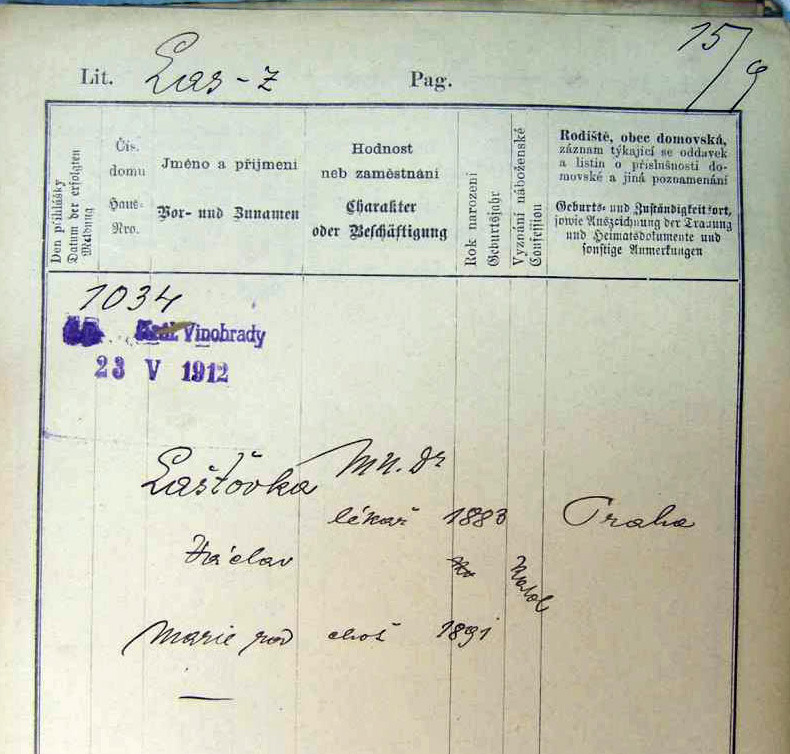 15/9
Lit. Las-Z Pag.
Den přihlášky
Datum der erfolgten
Meldung
Čís.
domu
Haus-
Nro.
Jméno a příjmení
Vor- und Zunamen
Hodnost
neb zaměstnání
Charakter
oder Beschäftigung
Rok narození
Geburtsjahr
Vyznání náboženské
Confession
Rodiště, obec domovská,
záznam týkající se oddavek
a listin o příslušnosti do-
movské a jiná poznamenání
Geburts- und Zuständigkeitsort,
sowie Auszeichnung der Trauung
und Heimatsdokumente und
sonstige Anmerkungen
1034
Král. Vinohrady
23 V 1912
Lašťovka MU. Dr
lékař 1883 Praha
Václav
Katol
Marie roz choť 1891